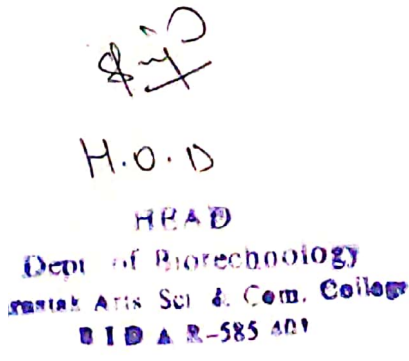 H.O.D
HEAD
Dept of Biotechnology
Arts Sci & Com. College
BIDAR-585 401